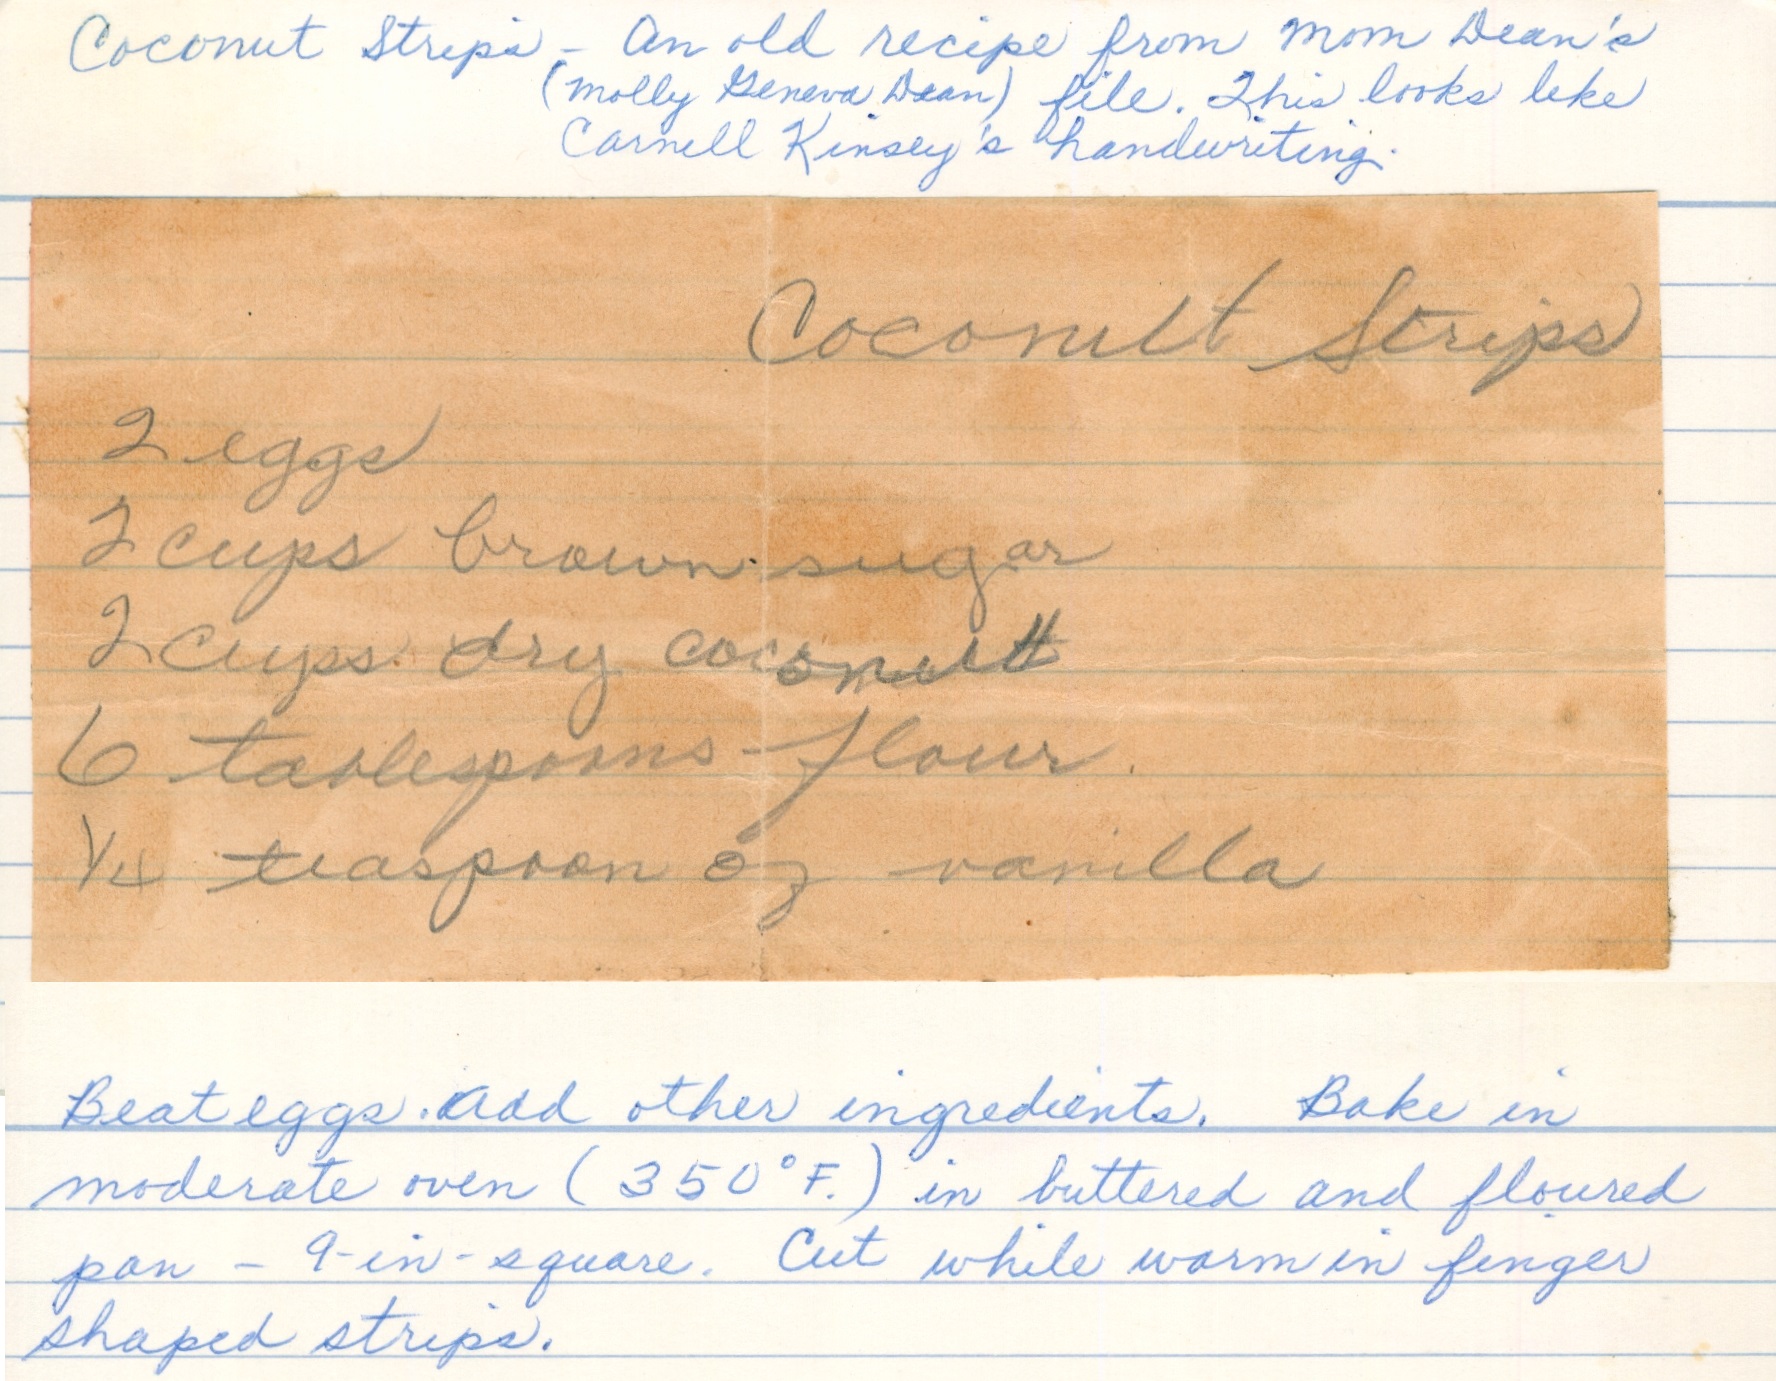 Coconut Strips - An old recipe from Mom Dean's
(Molly Geneva Dean) file. This looks like
Carnell Kinsey's handwriting.
Coconut Strips
2 eggs
2 cups brown sugar
2 cups dry coconut
6 tablespoons flour
1/4 teaspoon of vanilla
Beat eggs. Add other ingredients. Bake in
moderate oven (350° F.) in buttered and floured
pan - 9-in-square. Cut while warm in finger
shaped strips.